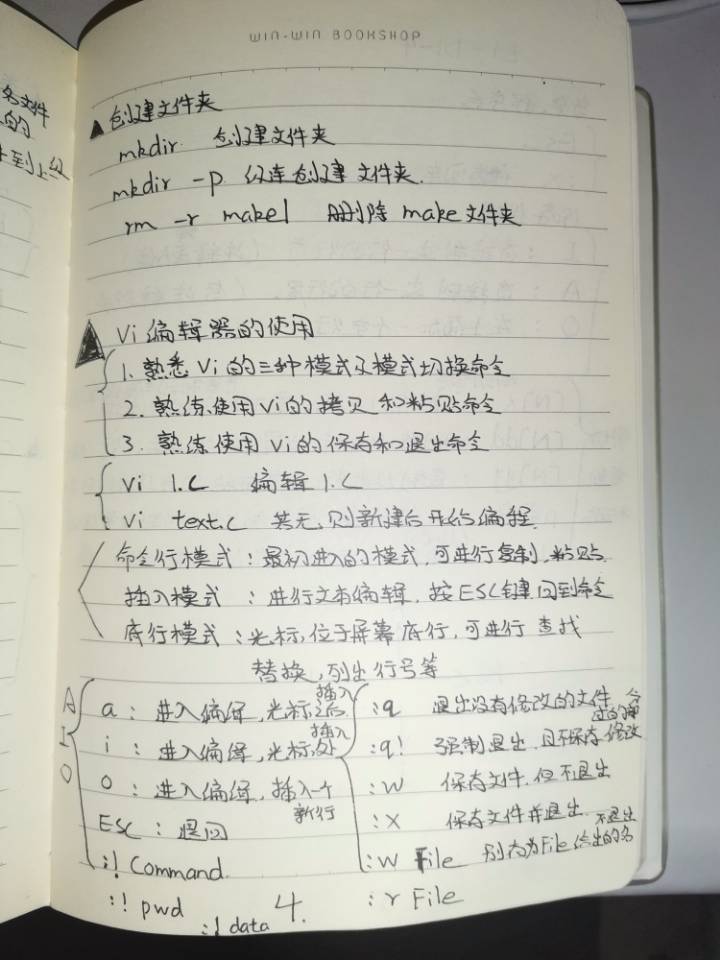 WIN-WIN BOOKSHOP
名文件
的
到上级
▲创建文件夹
mkdir 创建文件夹
mkdir -p 级连创建文件夹.
rm -r make1 删除 make文件夹
▲Vi编辑器的使用
1. 熟悉Vi的三种模式及模式切换命令
2. 熟练使用Vi的拷贝和粘贴命令
3. 熟练使用Vi的保存和退出命令
Vi 1.c 编辑1.c
Vi text.c 若无,则新建后开始编程.
命令行模式:最初进入的模式,可进行复制,粘贴.
插入模式:进行文本编辑,按ESC键回到命令
底行模式:光标,位于屏幕底行,可进行 查找
替换,列出行号等
A
I
O
a:进入编辑,光标之后插入
i:进入编辑,光标处插入
o:进入编辑,插入一个新行
ESC:退回
:! Command.
:! pwd
:! data
:q 退出没有修改的文件
:q! 强制退出,且不保存修改过的
:w 保存文件,但不退出
:x 保存文件并退出.
:w File 另存为File给出的名 不退出
:r File
4.